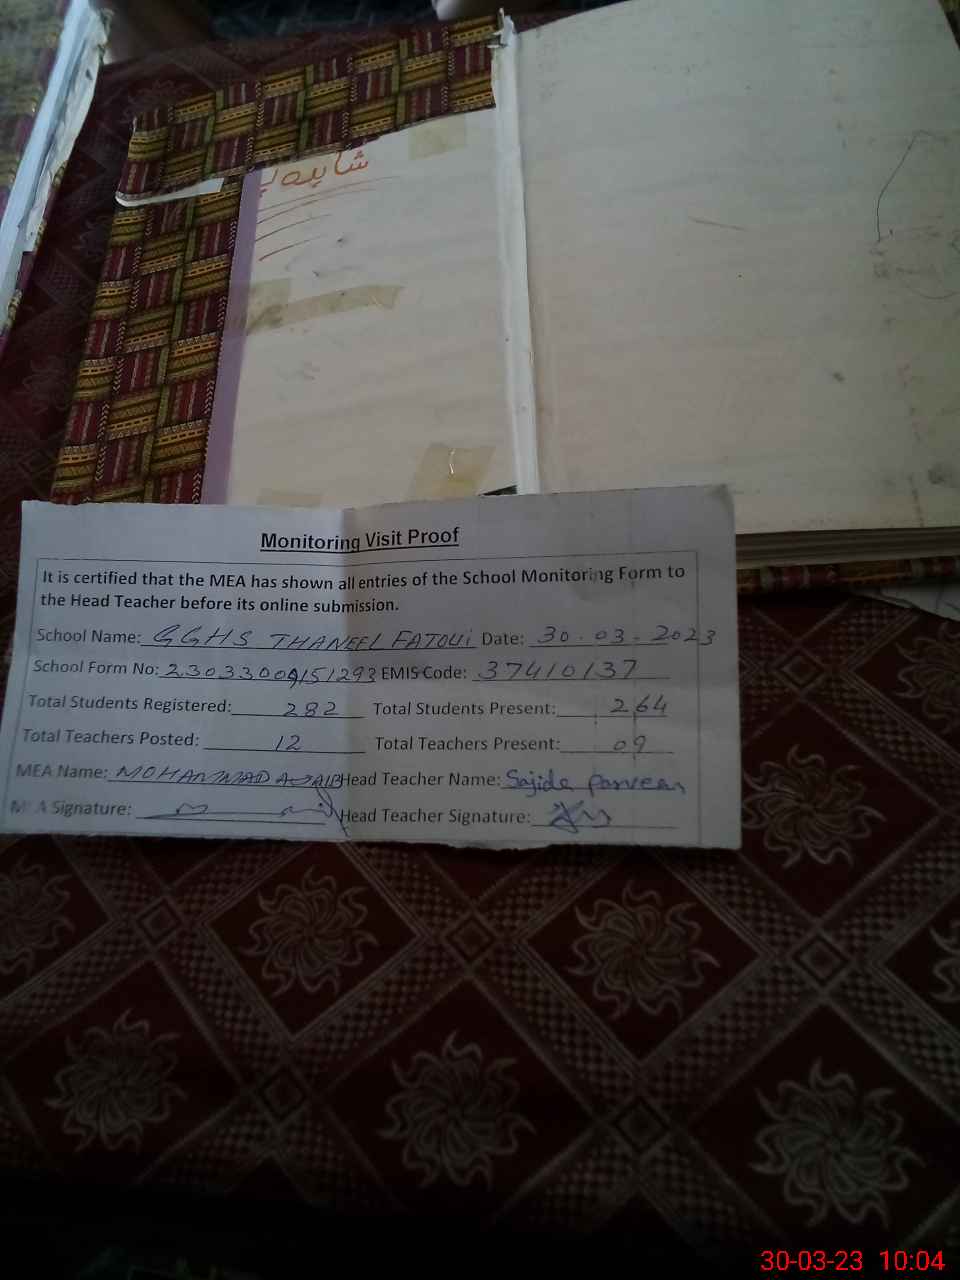 شاہدہ پ
Monitoring Visit Proof
It is certified that the MEA has shown all entries of the School Monitoring Form to
the Head Teacher before its online submission.
School Name: GGHS THANEEL FATOUi Date: 30.03-2023
School Form No: 23033009151293 EMIS Code: 37410137
Total Students Registered: 282 Total Students Present: 264
Total Teachers Posted: 12 Total Teachers Present: 09
MEA Name: MOHAMMAD AJAIB Head Teacher Name: Sajida Parveen
MEA Signature: Head Teacher Signature:
30-03-23 10:04